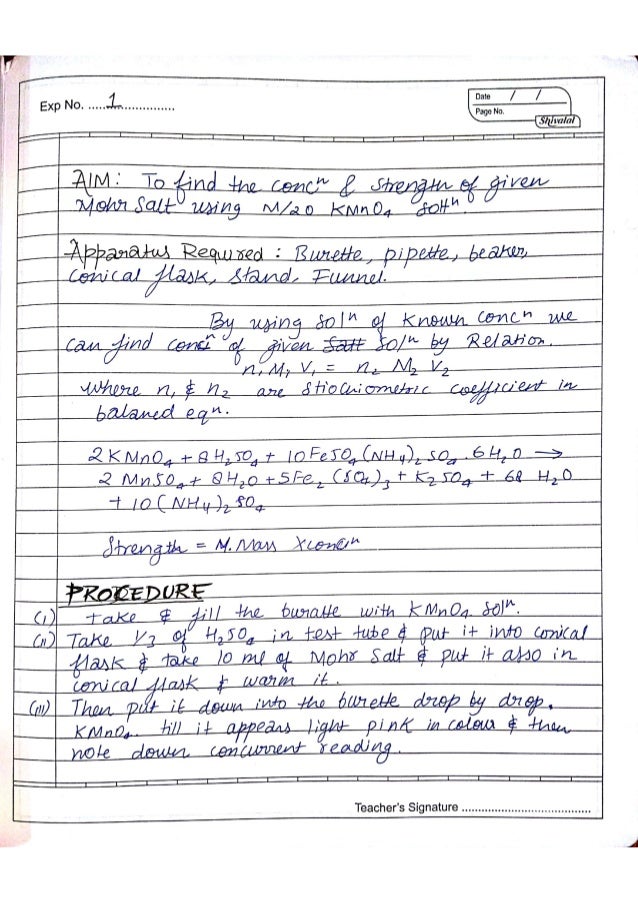 Exp No. .....1...............
Date / /
Page No.
Shivalal
AIM: To find the concn & strength of given
Mohr Salt using M/20 KMnO4 soltn.
Apparatus Required : Burette, pipette, beaker,
conical flask, stand, Funnel.
By using soln of known concn we
can find concn of given Salt soln by Relation.
n1 M1 V1 = n2 M2 V2
where n1 & n2 are stiochiometric coefficient in
balaned eqn.
2KMnO4 + 8H2SO4 + 10FeSO4(NH4)2SO4.6H2O →
2 MnSO4 + 8H2O + 5Fe2(SO4)3 + K2SO4 + 68 H2O
+ 10(NH4)2SO4
Strength = M. Mass X concn
PROCEDURE
(i) take & fill the buratte with KMnO4 soln.
(ii) Take 1/3 of H2SO4 in test tube & put it into conical
flask & take 10 ml of Mohr Salt & put it also in
conical flask & warm it.
(iii) Then put it down into the burette drop by drop.
KMnO4 till it appears light pink in colour & then
note down concurrent reading.
Teacher's Signature .......................................